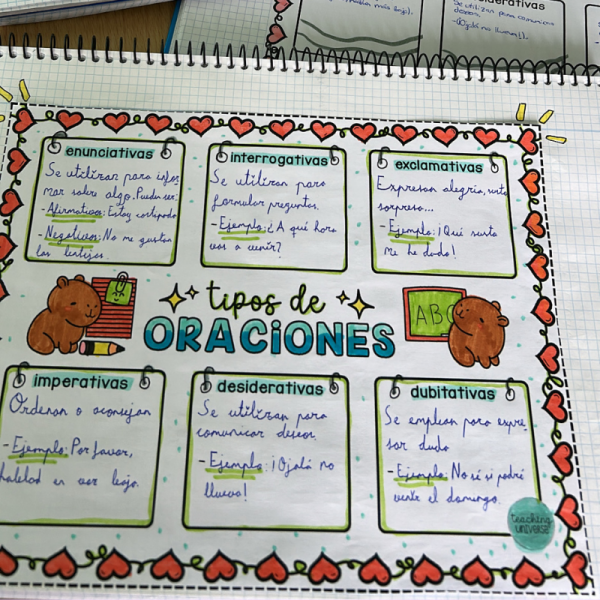 desiderativas
Se utilizan para comunicar
deseos.
enunciativas
Se utilizan para infor
mar sobre algo. Pueden ser:
-Afirmativa: Estoy
-Negativas: No me gustan
las lentejas.
interrogativas
Se utilizan para
formular preguntas.
-Ejemplo: ¿A qué hora
vas a venir?
exclamativas
Expresan alegría, susto
sorpresa...
-Ejemplo: ¡Qué susto
me he dado!
tipos de
ORACIONES
ABC
imperativas
Ordenan o aconsejan
-Ejemplo: Por favor,
hablad en voz baja.
desiderativas
Se utilizan para
comunicar deseos.
-Ejemplo: ¡Ojalá no
llueva!
dubitativas
Se emplean para expre
sar duda
-Ejemplo: No sé si podré
verte el domingo.
teaching
UNIVERSE